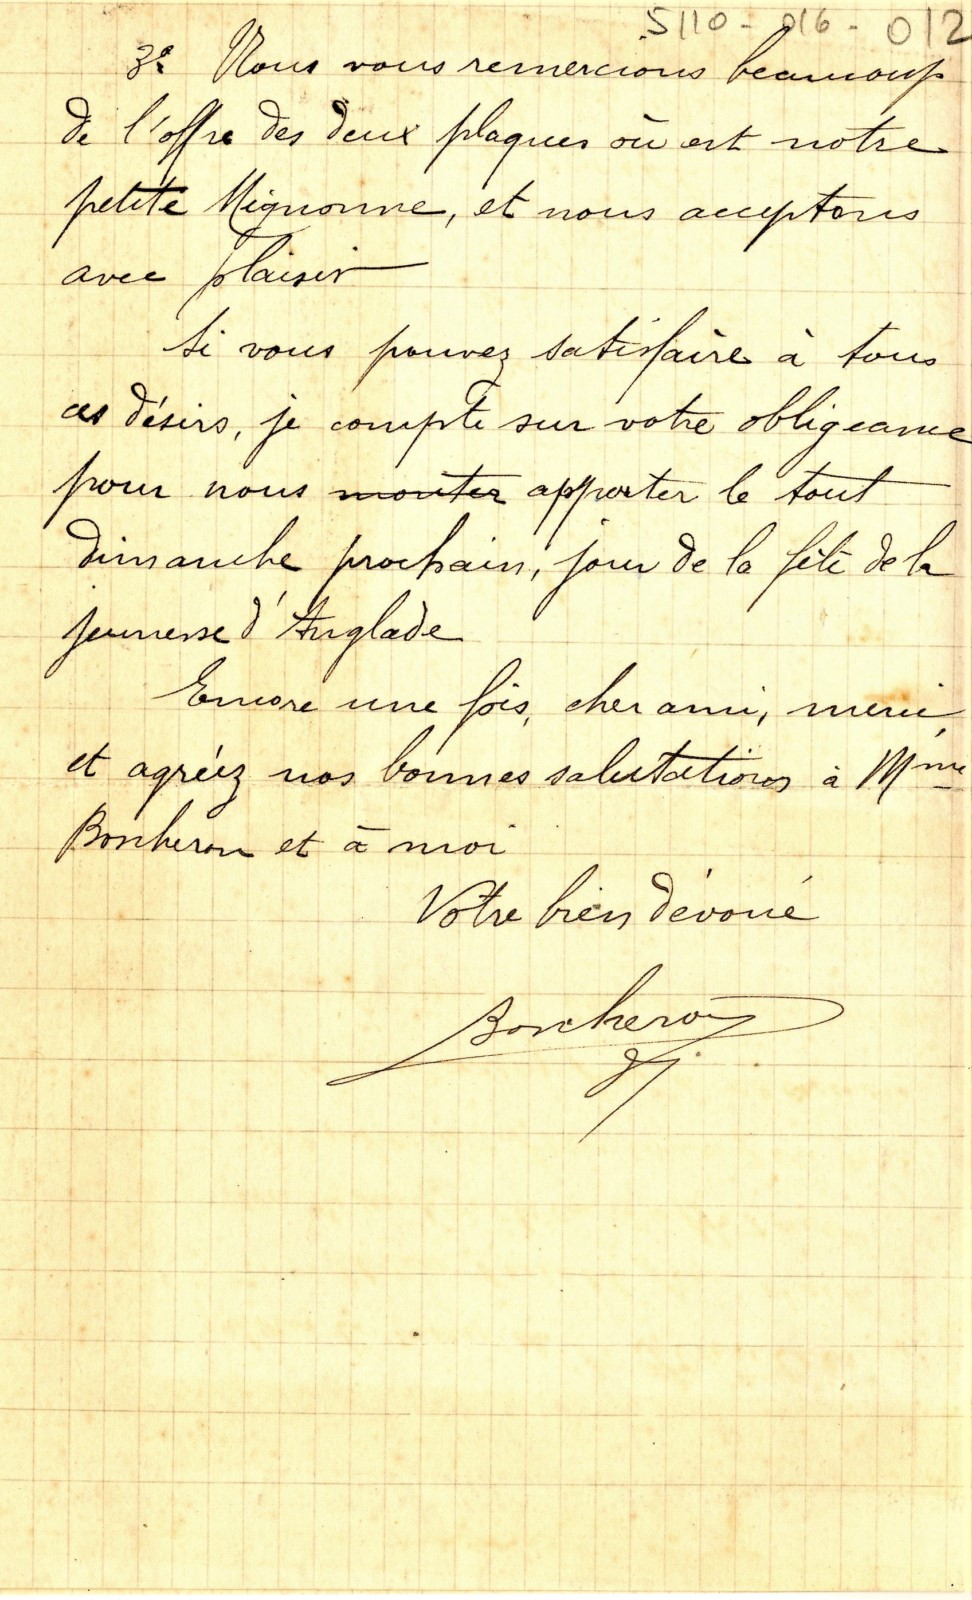 5110-016-012
3º Nous vous remercions beaucoup
de l'offre des deux plaques où est notre
petite Mignonne, et nous acceptons
avec plaisir
Si vous pouvez satisfaire à tous
ces désirs, je compte sur votre obligeance
pour nous monter apporter le tout
dimanche prochain, jour de la fête de la
jeunesse d'Anglade
Encore une fois, cher ami, merci,
et agréez nos bonnes salutations à Mme
Boscheron et à moi
Votre bien dévoué
Boscheron